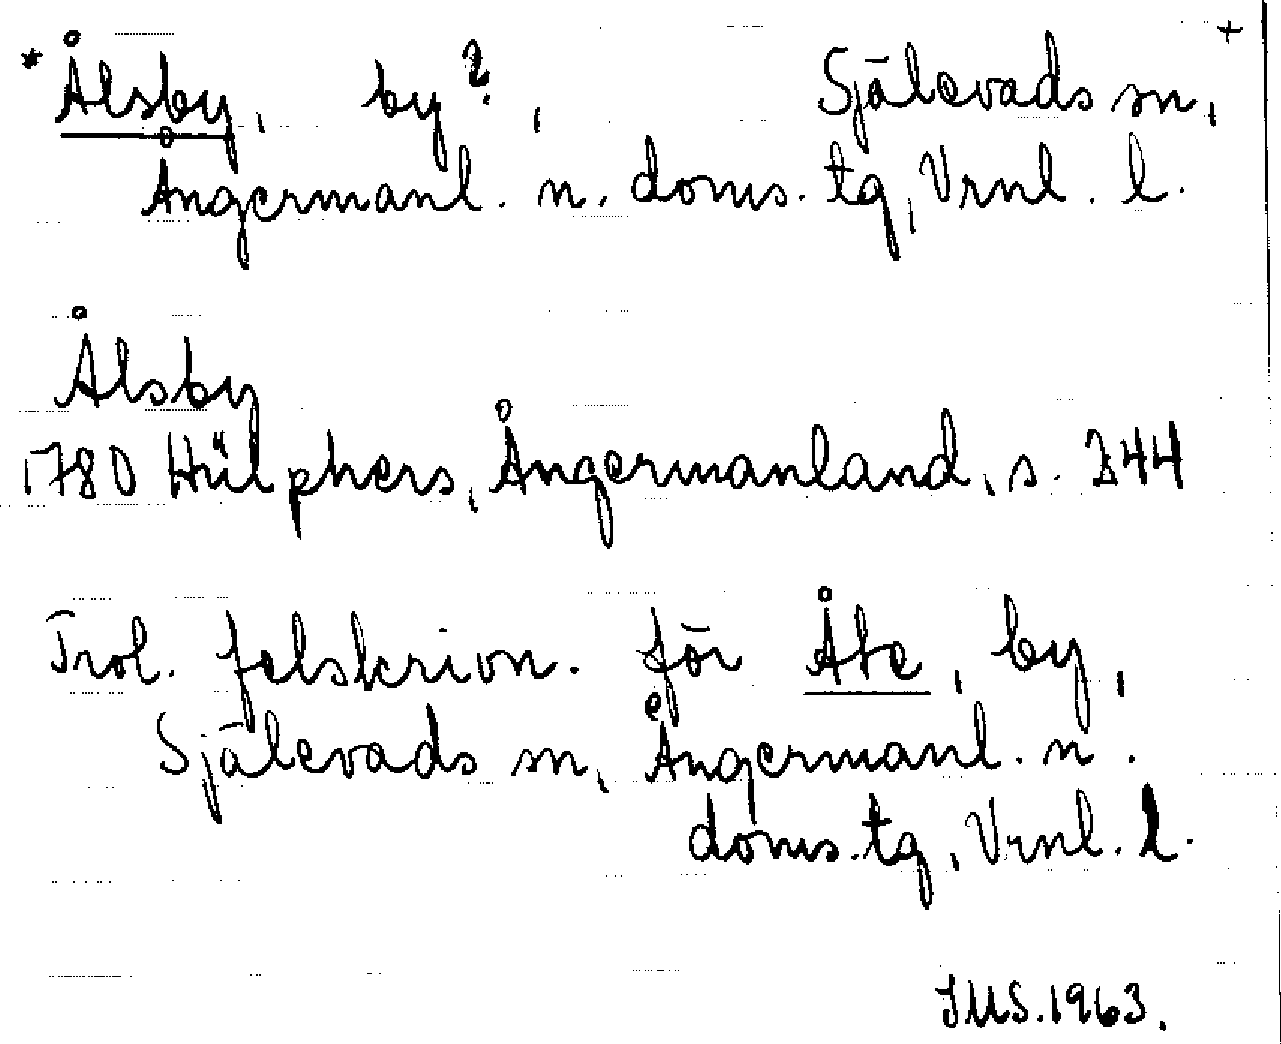 * Ålsby, by?, Själevads sn, +
Ångermanl. n. doms. tg, Vrnl. l.
Ålsby
1780 Hülphers, Ångermanland, s. 244
Trol. felskrivn. för Åte, by,
Själevads sn, Ångermanl. n.
doms. tg, Vrnl. l.
JUS. 1963.